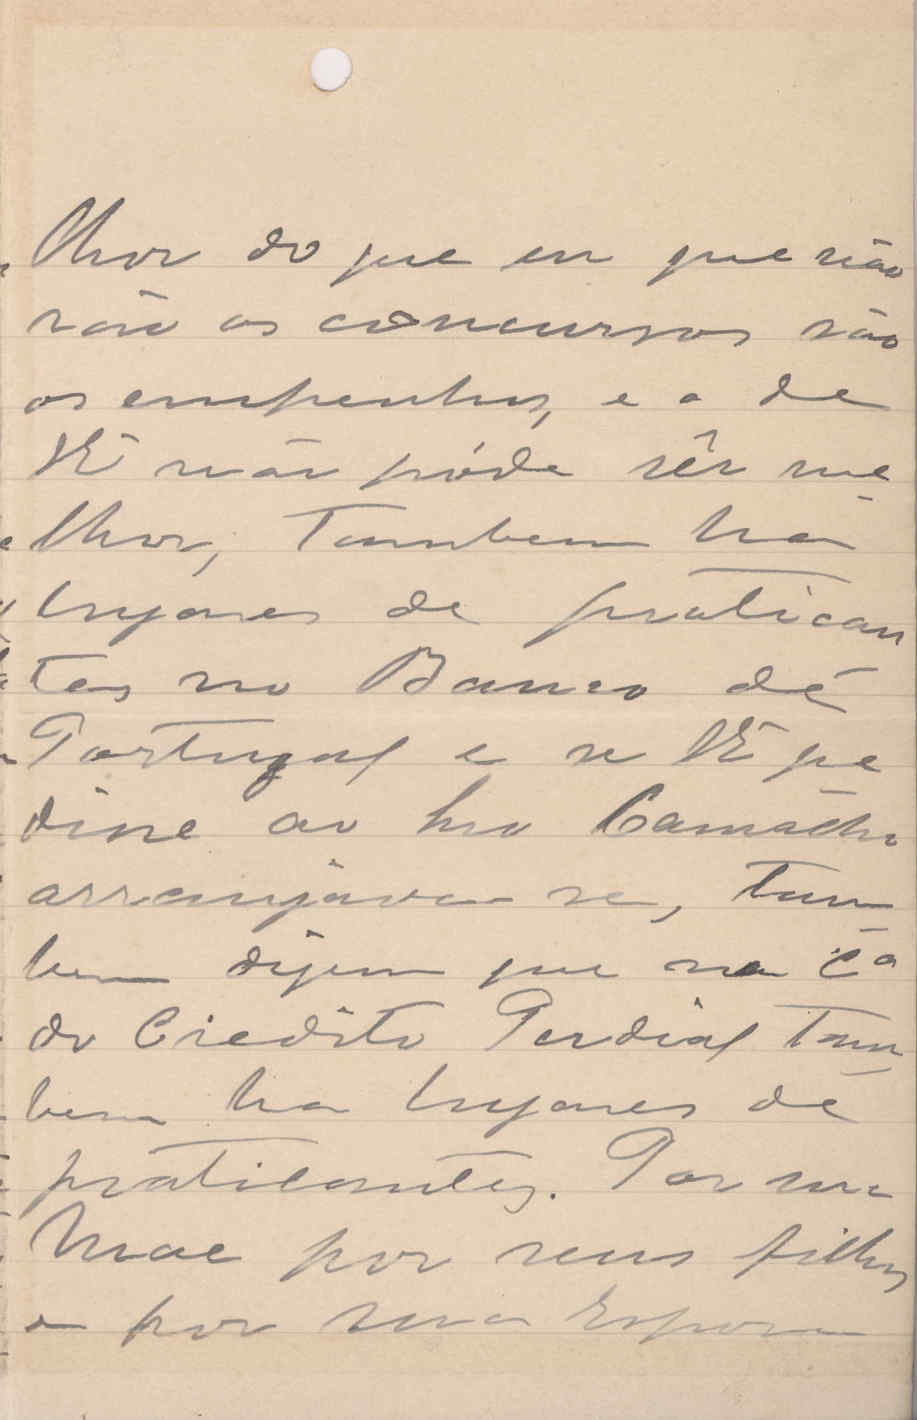 lhor do que eu que não
são os concursos são
os empenhos, e o de
VE não póde sêr me
lhor, Tambem há
lugares de pratican
tes no Banco de
Portugal e se VE pe
disse ao Camacho
arranjava se, tam
bem dizem que na Cª
do Credito Perdial Tam
bem ha lugares de
praticantes. Por sua
Mae por seus filhos
e por sua Espoza